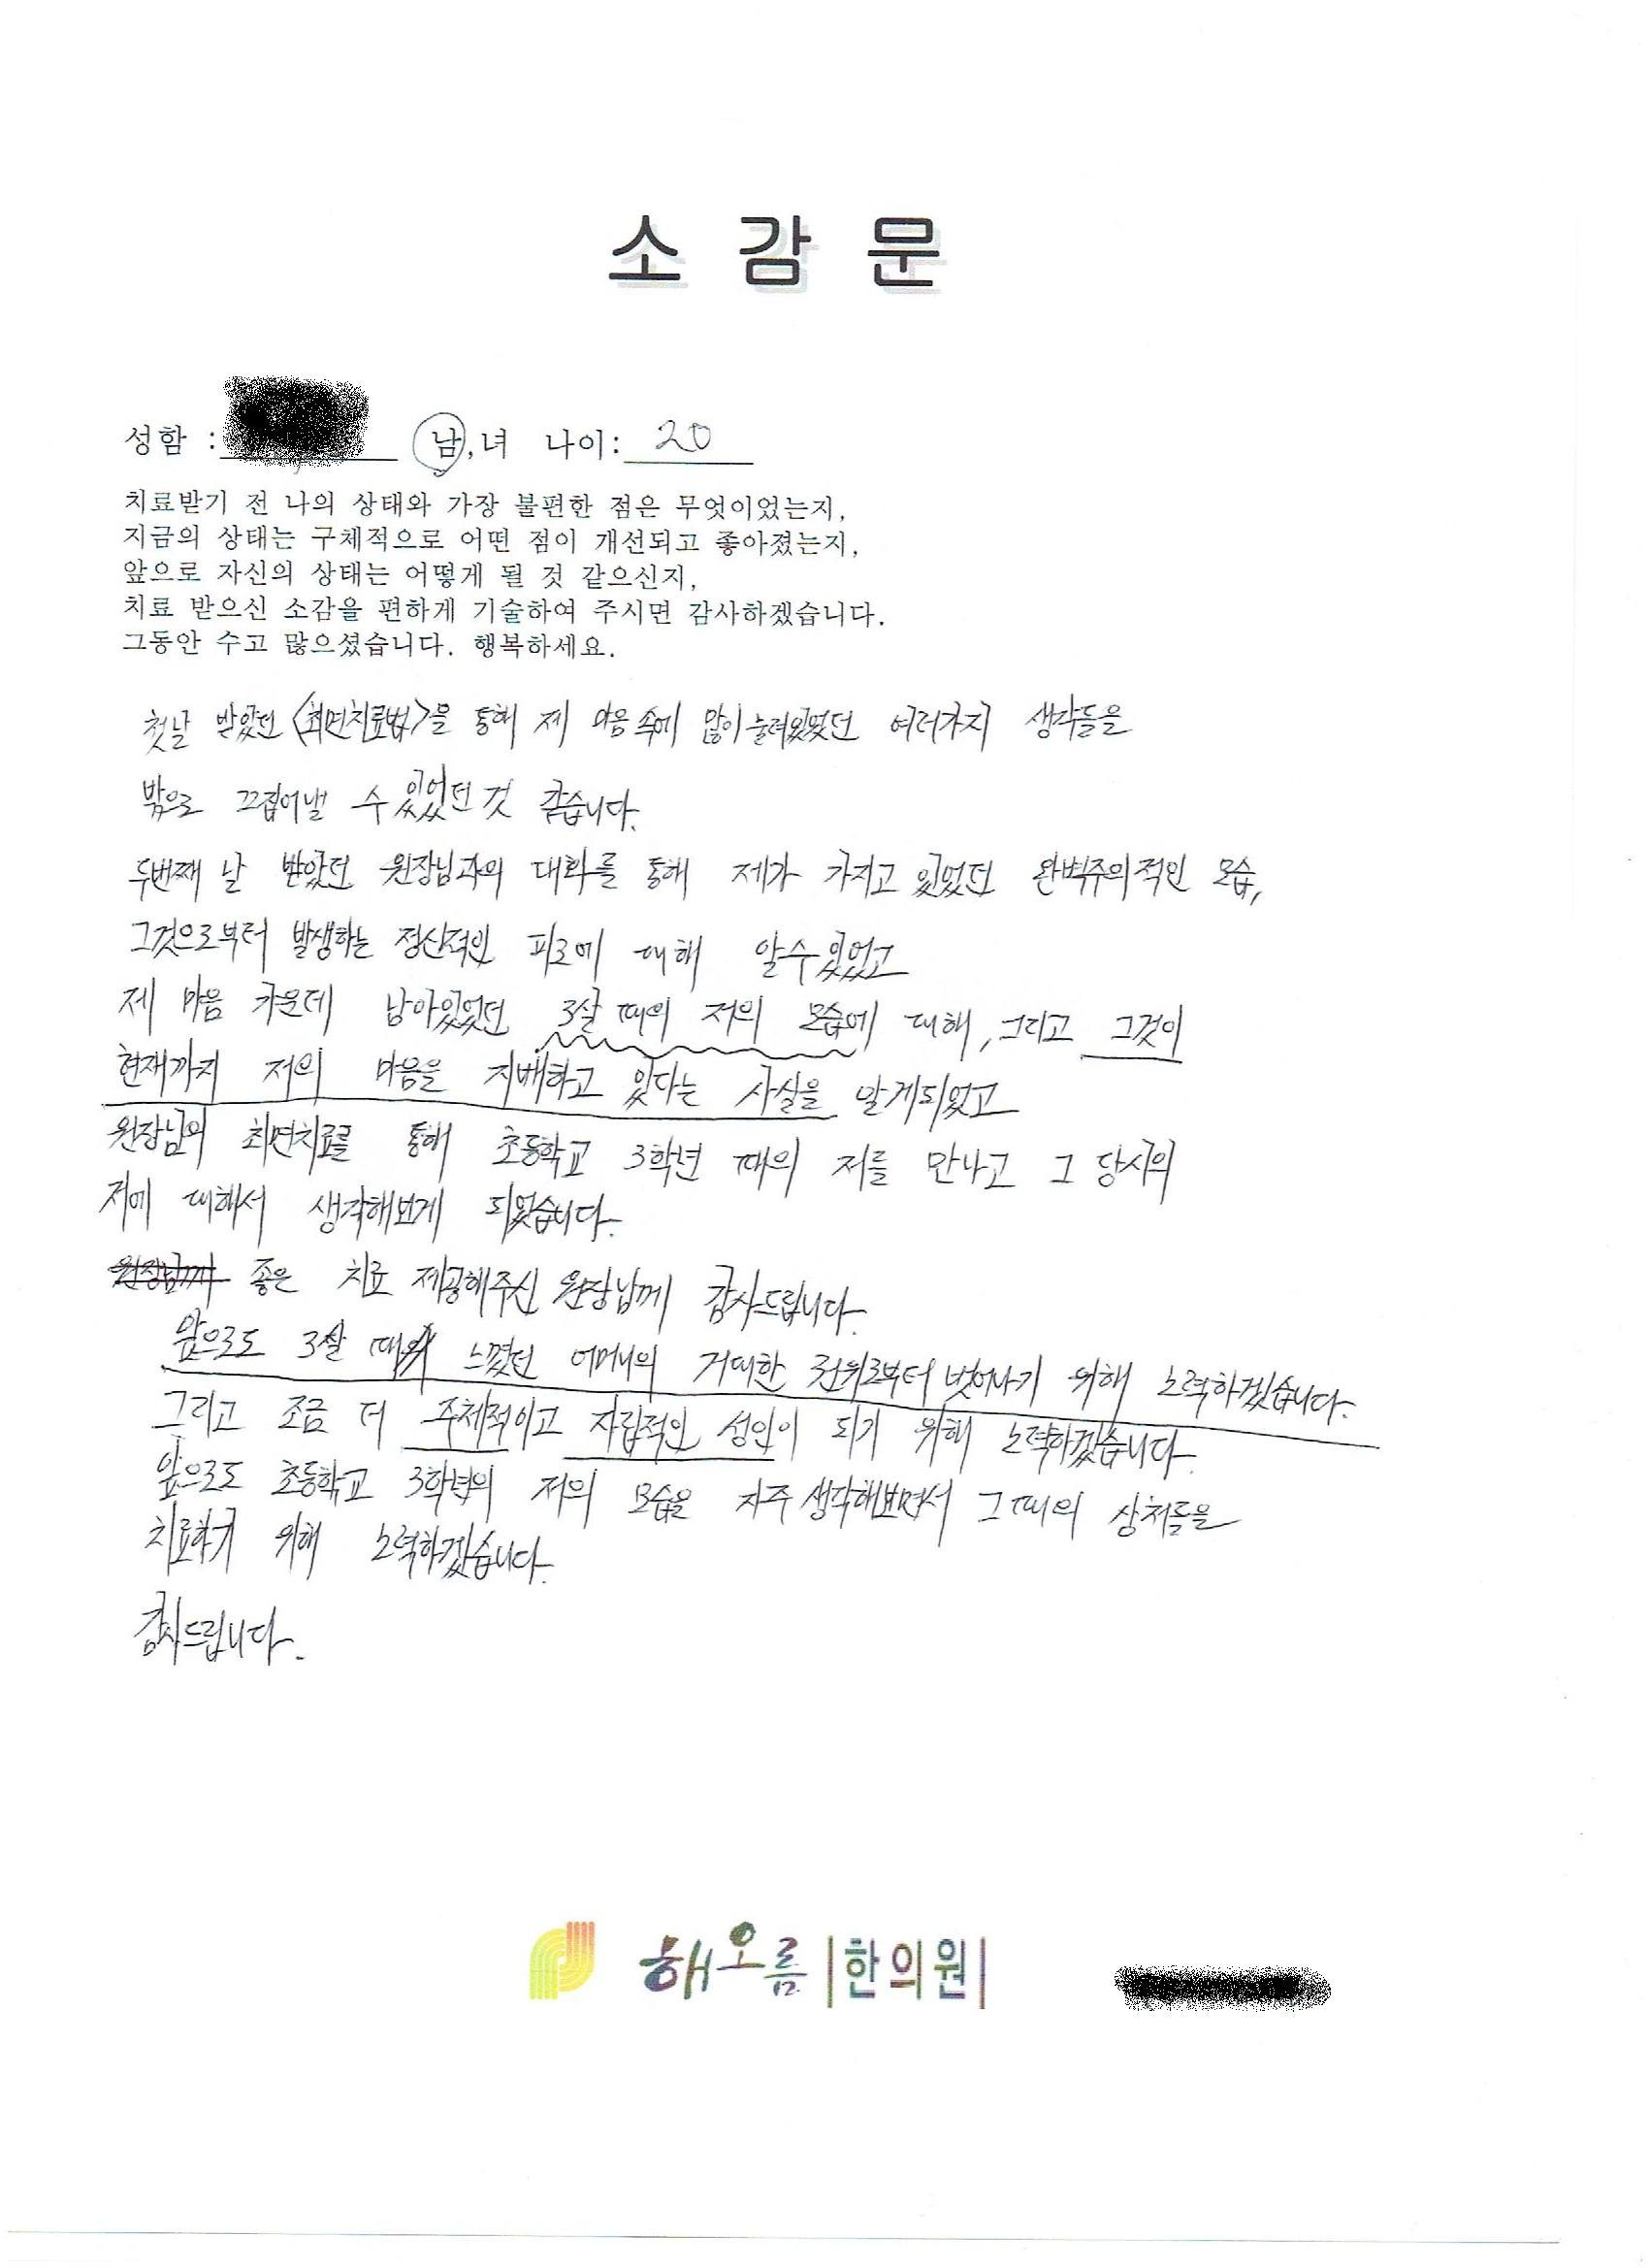 소 감 문
성함 : 남,녀 나이: 20
치료받기 전 나의 상태와 가장 불편한 점은 무엇이었는지,
지금의 상태는 구체적으로 어떤 점이 개선되고 좋아졌는지,
앞으로 자신의 상태는 어떻게 될 것 같으신지,
치료 받으신 소감을 편하게 기술하여 주시면 감사하겠습니다.
그동안 수고 많으셨습니다. 행복하세요.
첫날 받았던 <최면치료법>을 통해 제 마음 속에 많이 눌려있었던 여러가지 생각들을
밖으로 끄집어낼 수 있었던 것 같습니다.
두번째 날 받았던 원장님과의 대화를 통해 제가 가지고 있었던 완벽주의적인 모습,
그것으로부터 발생하는 정신적인 피로에 대해 알수있었고
제 마음 가운데 남아있었던 3살 때의 저의 모습에 대해, 그리고 그것이
현재까지 저의 마음을 지배하고 있다는 사실을 알게되었고
원장님의 최면치료를 통해 초등학교 3학년 때의 저를 만나고 그 당시의
저에 대해서 생각해보게 되었습니다.
원장님께 좋은 치료 제공해주신 원장님께 감사드립니다.
앞으로도 3살 때 느꼈던 어머니의 거대한 권위로부터 벗어나기 위해 노력하겠습니다.
그리고 조금 더 주체적이고 자립적인 성인이 되기 위해 노력하겠습니다.
앞으로도 초등학교 3학년의 저의 모습을 자주 생각해보면서 그 때의 상처들을
치료하기 위해 노력하겠습니다.
감사드립니다.
해오름 한의원